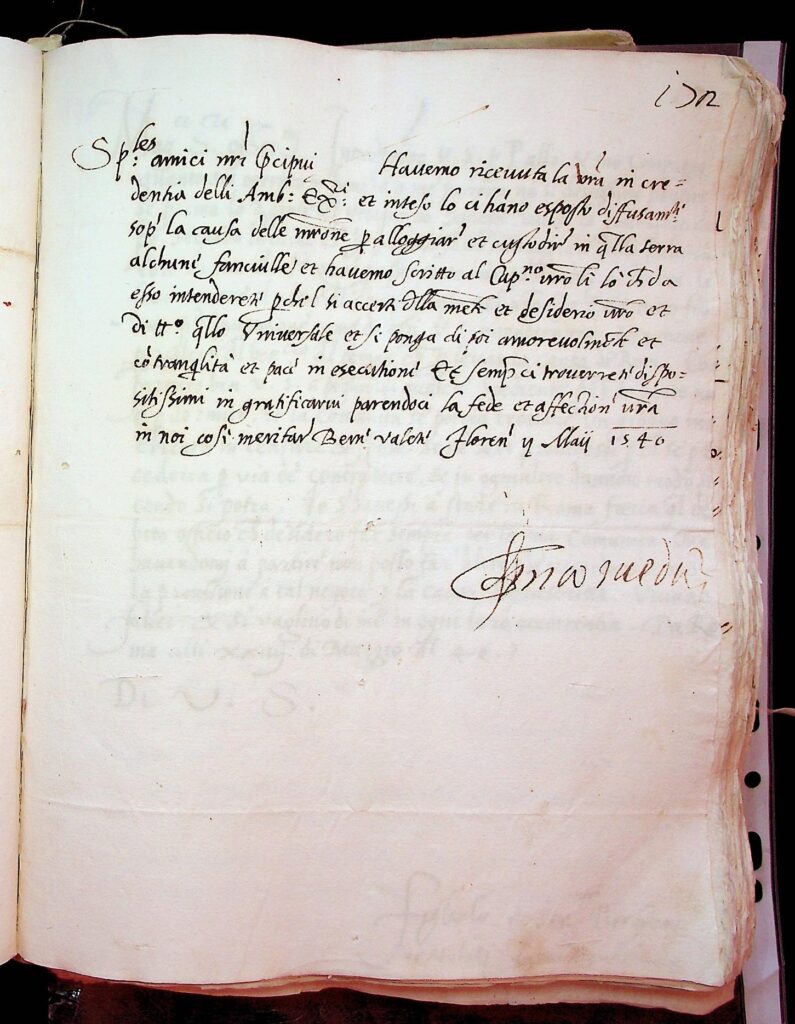 172
Sp:les amici nr̃i Pcipui Havemo ricevuta la vr̃a in cre=
dentia delli Amb: et inteso lo ci hāno esposto diffusam:te
sop' la causa delle p alloggiar' et custodir' in q̃lla terra
alchune fanciulle et havemo scritto al Cap:no vr̃o li lo da
esso intenderete perchel si accerti della mente et desiderio vr̃o et
di tt:o q̃llo Universale et si ponga di poi amorevolmente et
cō tranq̃lità et pace in esecutione Et semp ci troverrete dispo=
sitissimi in gratificarvi parendoci la fede et affection' vr̃a
in noi cosi meritar' Bene valete Floren' Maij 1540